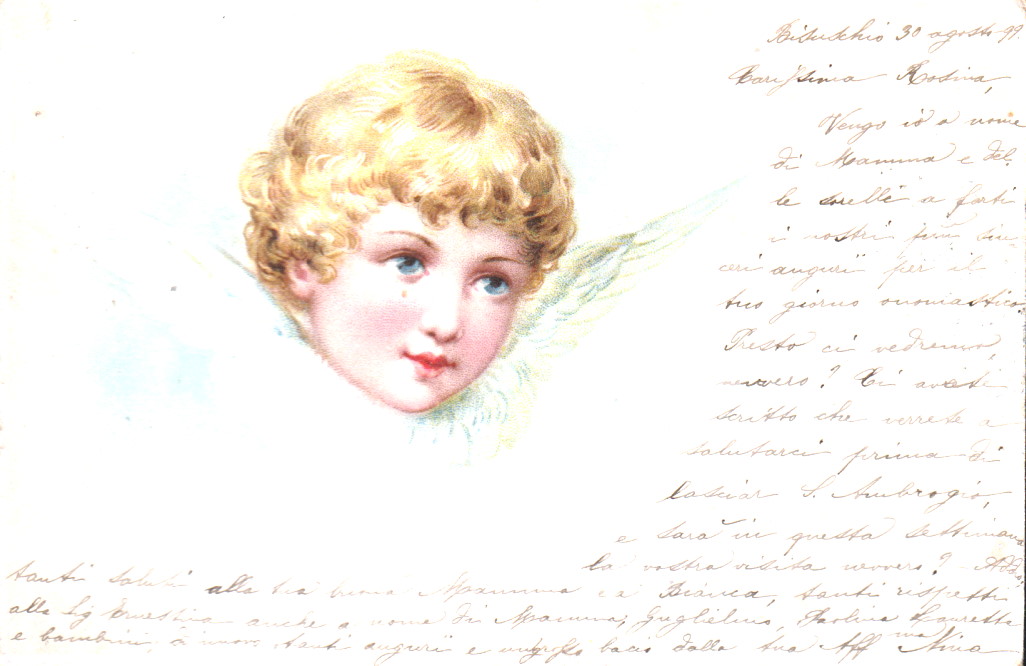 Bisuschio 30 agosto 99.
Carissima Rosina,
Vengo io a nome
di Mamma e del-
le sorelle a farti
i nostri più sin-
ceri auguri per il
tuo giorno onomastico.
Presto ci vedremo,
nevvero? Ci avete
scritto che verrete a
salutarci prima di
lasciar S. Ambrogio,
e sarà in questa settimana
la vostra visita nevvero? Addio,
tanti saluti alla tua buona Mamma ed a Bianca, tanti rispetti
alla Sig Ernestina anche a nome di Mamma, Guglielmo, Paolina Lauretta
e bambini, di nuovo tanti auguri e un grosso bacio dalla tua Aff ma Nina